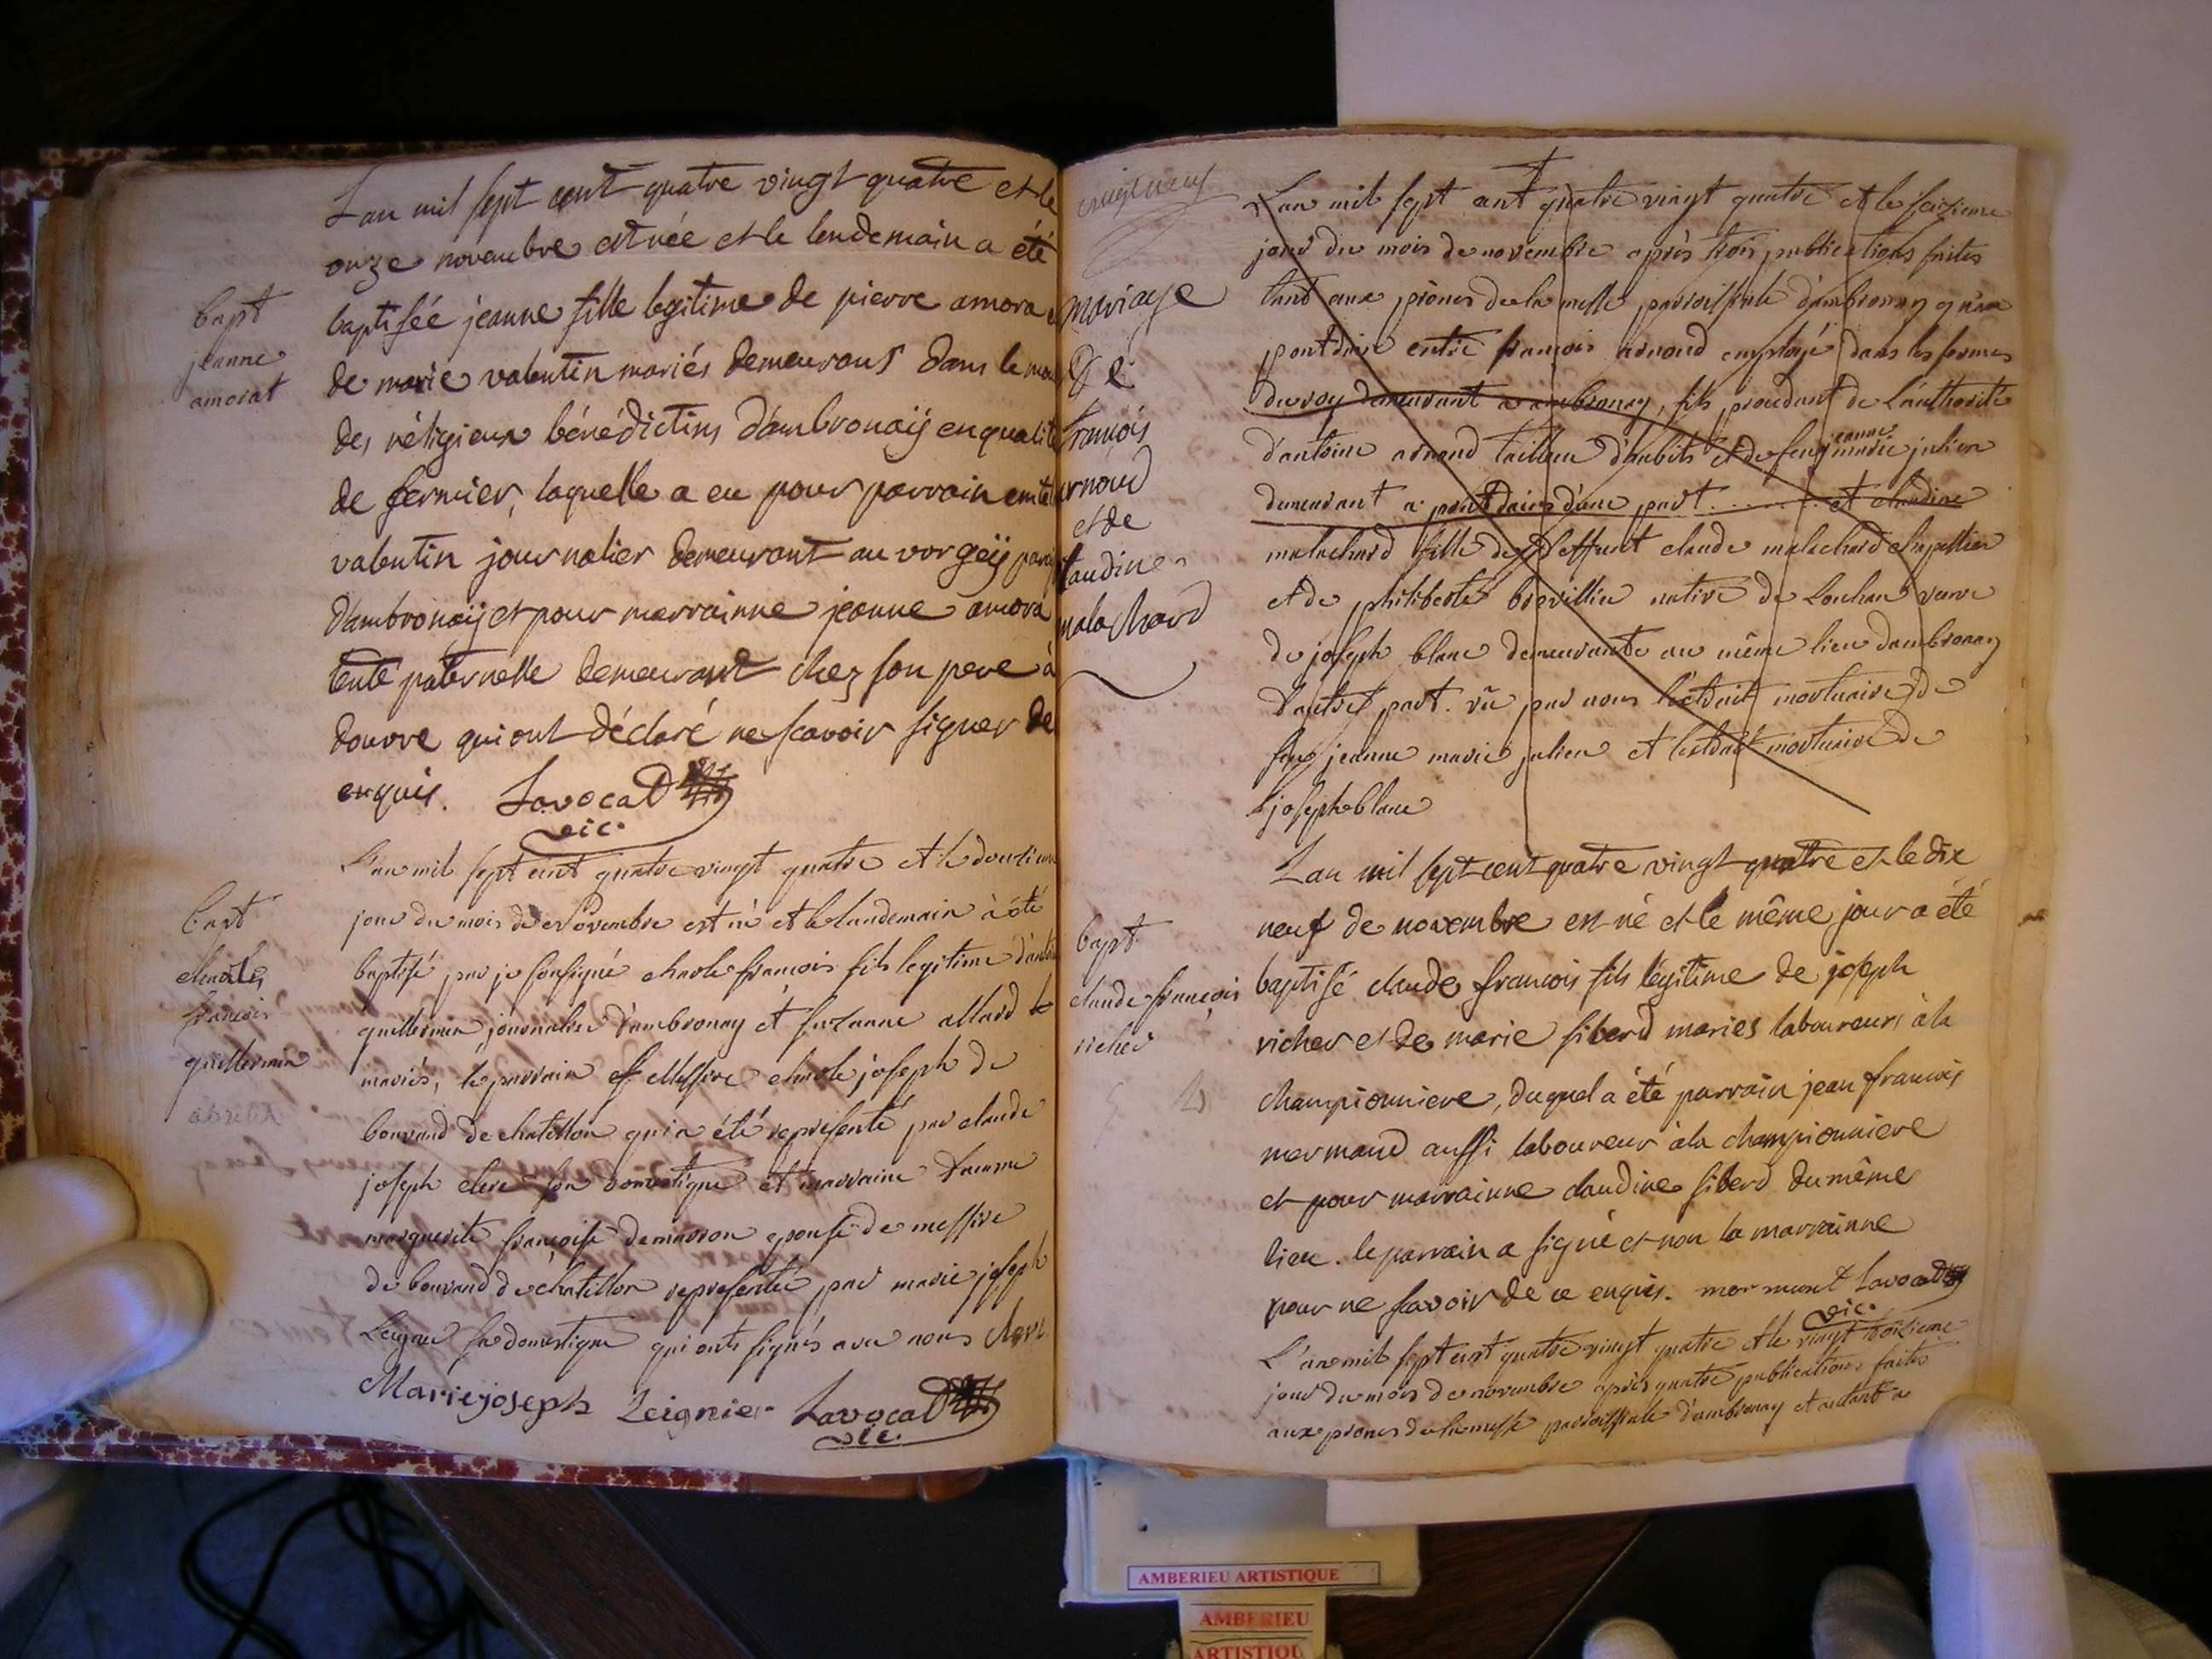 L'an mil sept cent quatre vingt quatre et le
onze novembre est née et le lendemain a été
bapt
jeanne
amorat
baptisée jeanne fille legitime de pierre amora
de marie valentin mariés demeurans dans le
des réligieux bénédictins d'ambronaÿ en qualité
de fermier, laquelle a eu pour parrain
valentin journalier demeurant au vorgeÿ
d'ambronaÿ et pour marrainne jeanne amora
tente paternelle demeurant chez son pere à
douvre qui ont déclaré ne scavoir signer de
enquis. Lavocat
vic.
L'an mil sept cent quatre vingt quatre et le douzieme
bapt
charles
françois
guillermin
jour du mois de novembre est né et le landemain à été
baptisé par je sousigné charle françois fils legitime
guillermin journalier d'ambronay et suzanne allard
mariés, le parrain messire charle joseph de
bouvand de chatillon qui a été représenté par claude
joseph clerc son domestique et marraine dame
marguerite françoise demarron epouse de messire
de bouvand de chatillon representée par marie joseph
sa domestique qui onts signés avec nous clerc
Marie joseph Leignier Lavocat
vic.
vingt neuf
mariage
de
françois
arnoud
et de
claudine
malachard
L'an mil sept cent quatre vingt quatre et le seizieme
jour du mois de novembre après trois publications faites
tant aux prônes de la messe paroissiale d'ambronay qu'a
pontdain entre françois arnoud employé dans les fermes
du roy demeurant a ambronay, fils proudant de l'authorité
d'antoine arnoud tailleur d'habits et de feue jeanne marie julien
demeurant a pontdain d'une part ........ et claudine
malachard fille de deffunt claude malachard chapellier
et de philiberte brevillier native de Louhan veuve
de joseph blanc demeurante au même lieu dambronay
d'autre part. vû par nous l'extrait mortuaire de
feue jeanne marie julien et l'extrait mortuaire de
joseph blanc
L'an mil sept cent quatre vingt quatre et le dix
bapt
claude françois
richer
neuf de novembre est né et le même jour a été
baptisé claude francois fils légitime de joseph
richer et de marie siberd mariés laboureurs à la
championniere, duquel a été parrain jean francois
mermand aussi laboureur à la championniere
et pour marrainne claudine siberd du même
lieu. le parrain a signé et non la marrainne
pour ne scavoir de ce enquis. mormant Lavocat
vic.
L'an mil sept cent quatre vingt quatre et le vingt troizieme
jour du mois de novembre après quatre publications faites
aux prones de la messe paroissiale d'ambronay et autant a
AMBERIEU ARTISTIQUE
AMBERIEU
ARTISTIQU